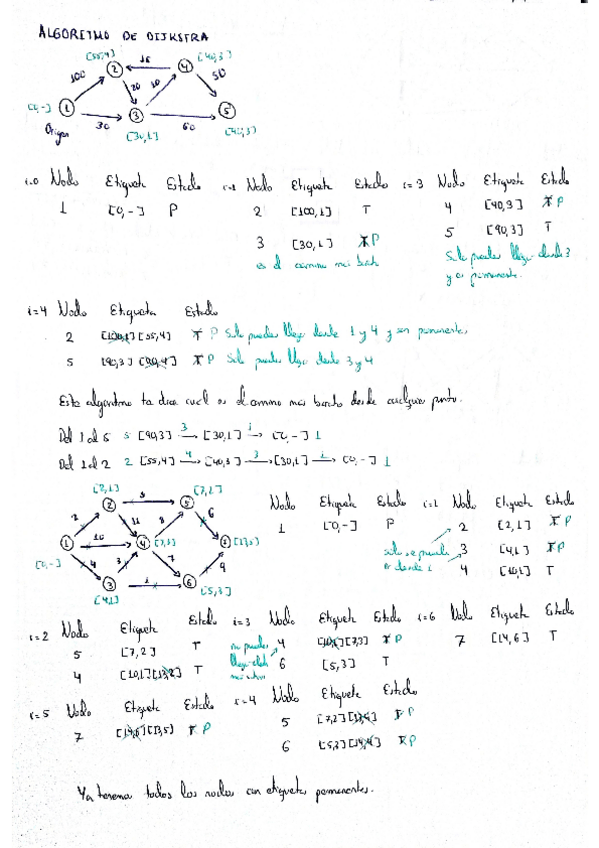 ALGORITMO DE DIJKSTRA
[55,4] 15 [40,3]
100 2 4 50
20 10
[0,-] 1 3 5
Origen 30 [30,1] 60 [90,3]
i=0 Nodo Etiqueta Estado i=1 Nodo Etiqueta Estado i=3 Nodo Etiqueta Estado
1 [0,-] P 2 [100,1] T 4 [40,3] T P
3 [30,1] T P 5 [90,3] T
es el camino más barato Solo puedes llegar desde 3
y es permanente.
i=4 Nodo Etiqueta Estado
2 [100,1] [55,4] T P Solo puedes llegar desde 1 y 4 y son permanentes
5 [90,3] [90,4] T P Solo puedes llegar desde 3 y 4
Este algoritmo te dice cual es el camino más barato desde cualquier punto.
Del 1 al 5 5 [90,3] 3 [30,1] 1 [0,-] 1
Del 1 al 2 2 [55,4] 4 [40,3] 3 [30,1] 1 [0,-] 1
[2,1] [7,2]
2 5
2 11 8 6
1 10 4 [7,3] 7 [13,5]
[0,-] 4 3 7 9
3 1 6
[4,1] [5,3]
Nodo Etiqueta Estado i=1 Nodo Etiqueta Estado
1 [0,-] P 2 [2,1] T P
solo se puede 3 [4,1] T P
ir desde 1 4 [10,1] T
i=2 Nodo Etiqueta Estado i=3 Nodo Etiqueta Estado i=6 Nodo Etiqueta Estado
5 [7,2] T no puedes 4 [10,1] [7,3] T P 7 [14,6] T
4 [10,1] [13,2] T llegar 6 [5,3] T
i=5 Nodo Etiqueta Estado i=4 Nodo Etiqueta Estado
7 [14,6] [13,5] T P 5 [7,2] T P
6 [5,3] [14,4] T P
Ya tenemos todos los nodos con etiquetas permanentes.